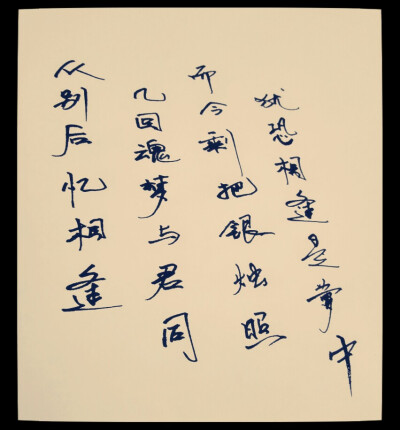 从别后忆相逢
几回魂梦与君同
而今剩把银烛照
犹恐相逢是中